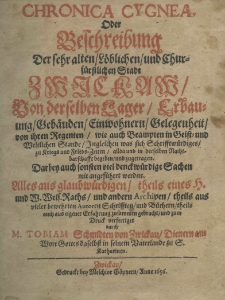 CHRONICA CYGNEA,
Oder
Beschreibung
Der sehr alten/ Löblichen/ und Chur-
fürstlichen Stadt
ZWICKAW/
Von derselben Lager/ Erbau-
ung/ Gebäuden/ Einwohnern/ Gelegenheit/
von ihrem Regenten/ wie auch Beampten in Geist- und
Weltlichen Stande/ Ingleichen was sich
zu Kriegs und Friedens-Zeiten/ allda und in derselben
begeben und zugetragen.
Darbey auch sonsten viel denckwürdige Sachen
mit angeführet werden.
Alles aus glaubwürdigen/ theils eines E.
und W. Weis. Raths/ und andern Archiven/ theils aus
vieler bewehrten Autorum Schrifften/ und Büchern/ theils
auch aus eigener Erfahrung genommen/ und zum
Druck verfertiget
durch
M. TOBIAM Schmidten von Zwickau/ Dienern am
Wort Gottes daselbst in seinem Vaterlande zu S.
Katharinen.
Zwickau/
Gedruckt bey Melchior Göpnern/ Anno 1656.